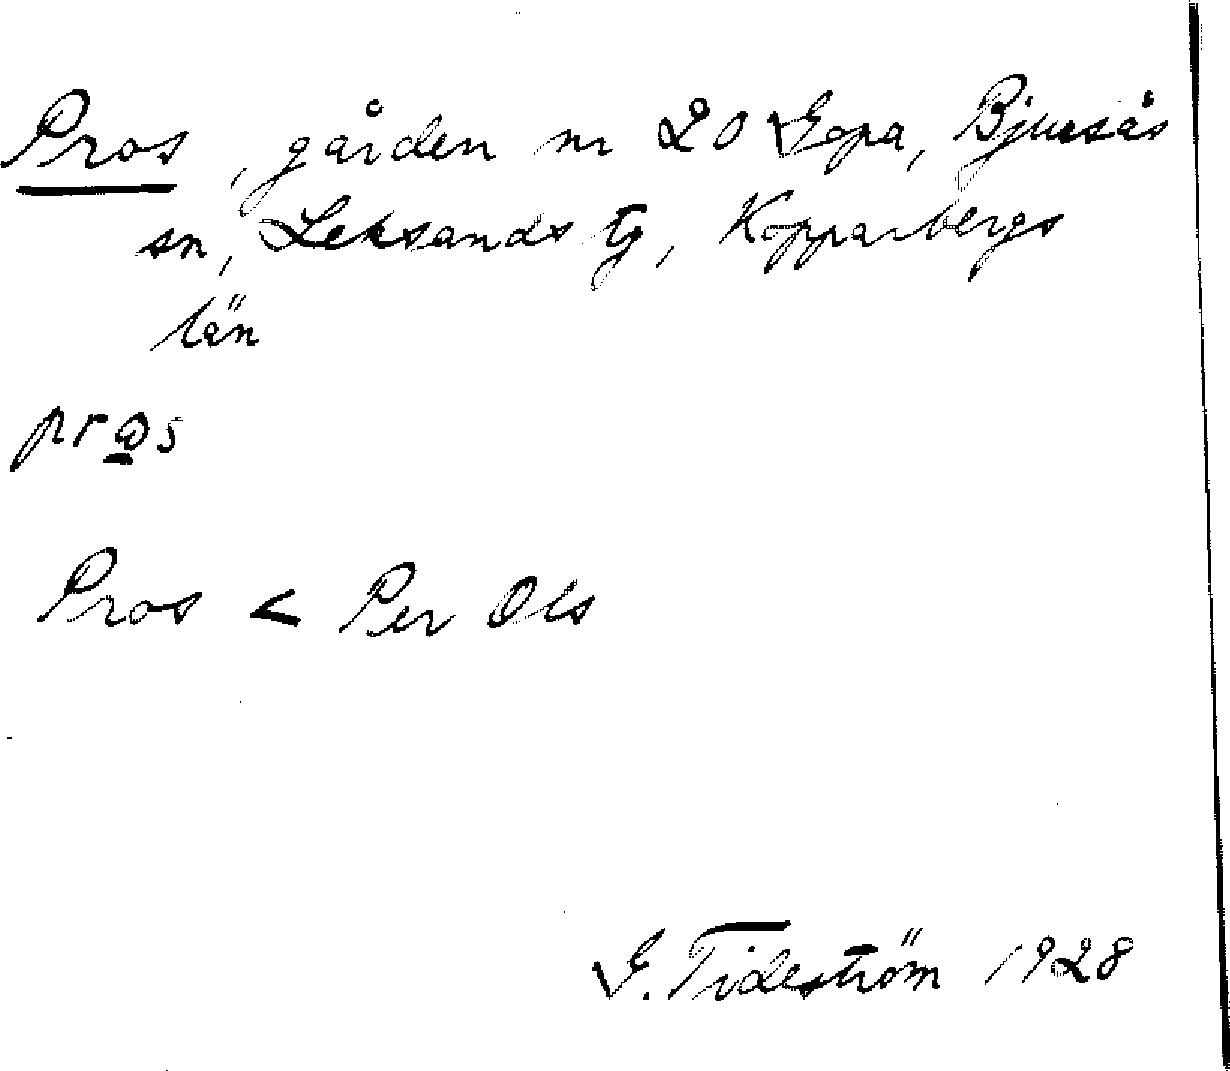 Pros, gården nr 20 Gopa, Bjursås
sn, Leksands tg, Kopparbergs
län
pros
Pros < Per Ols
G. Tideström 1928